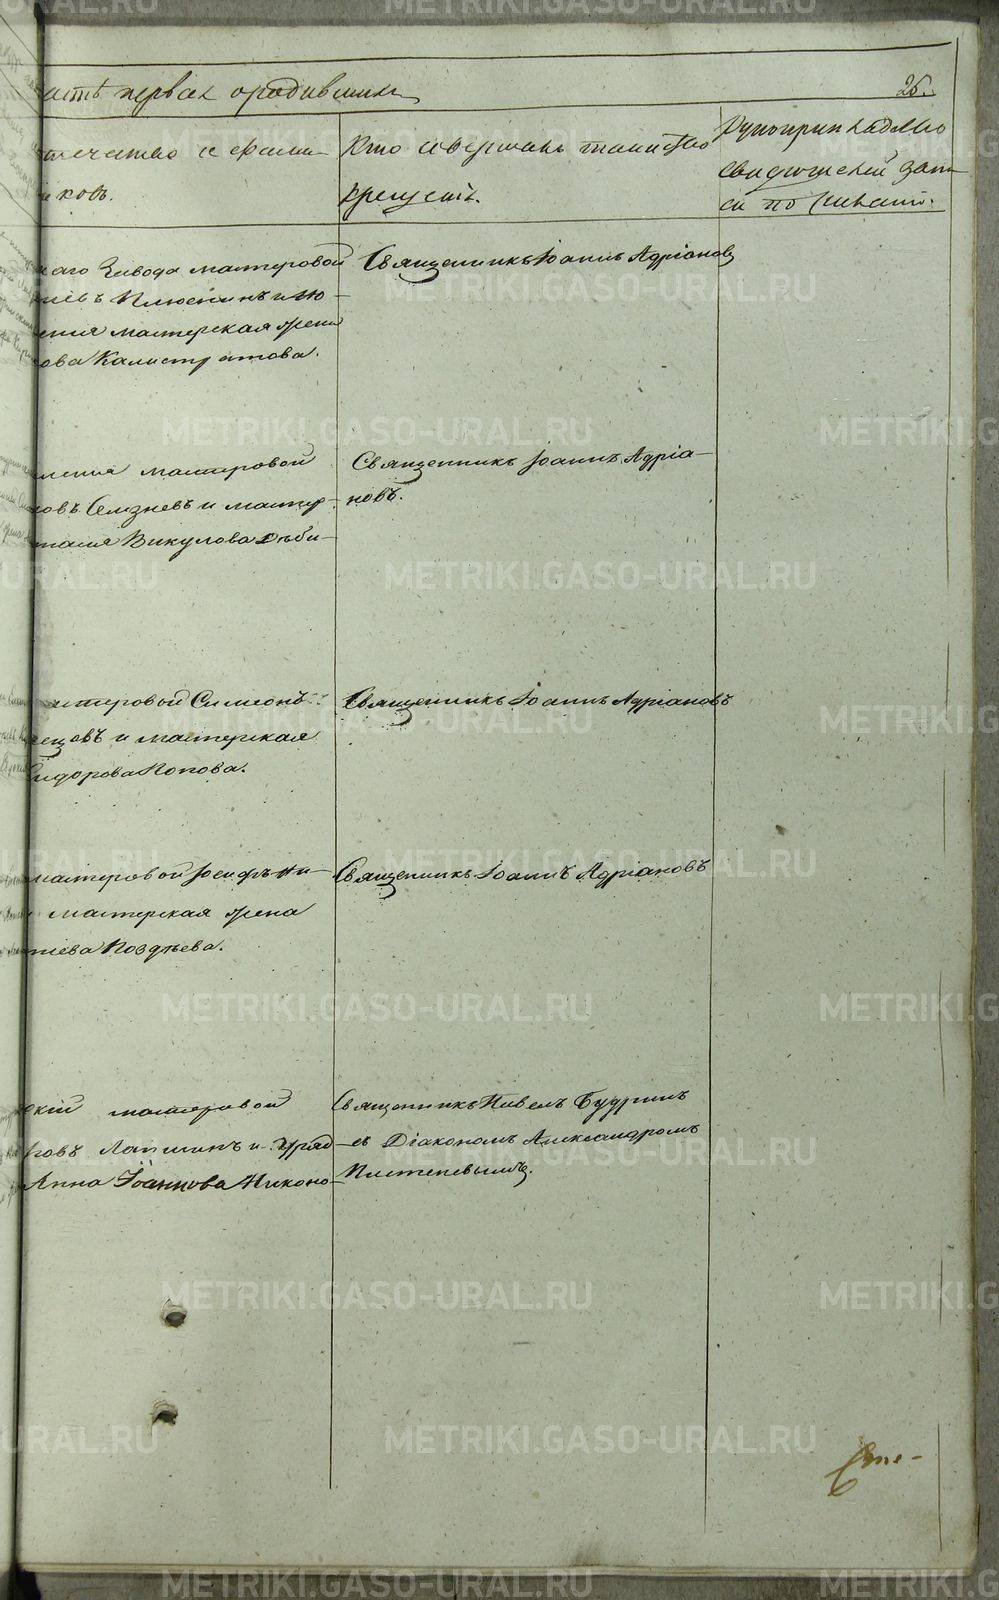 асть первая о родившихся
26.
течество и фами-
иковъ.
Кто совершалъ таинство
крещенія.
Рукоприкладство
свидѣтелей запи-
си по желанію.
каго Завода мастеровой
иевъ Плюснинъ и
мастерская жена
ова Калистратова.
Священникъ Іоаннъ Адріановъ
мастеровой
овъ Селезневъ и мастер-
Викулова Дьби-
Священникъ Іоаннъ Адріа-
новъ.
мастеровой Симеонъ
ещовъ и мастерская
Сидорова Попова.
Священникъ Іоаннъ Адріановъ
мастеровой Іосифъ Ни-
и мастерская жена
тіева Поздѣева.
Священникъ Іоаннъ Адріановъ
скій мастеровой
ровъ Лапшинъ и Уряд-
Анна Іоаннова Никоно-
Священникъ Павелъ Будринъ
съ Діакономъ Александромъ
Плетеневымъ.
METRIKI.GASO-URAL.RU